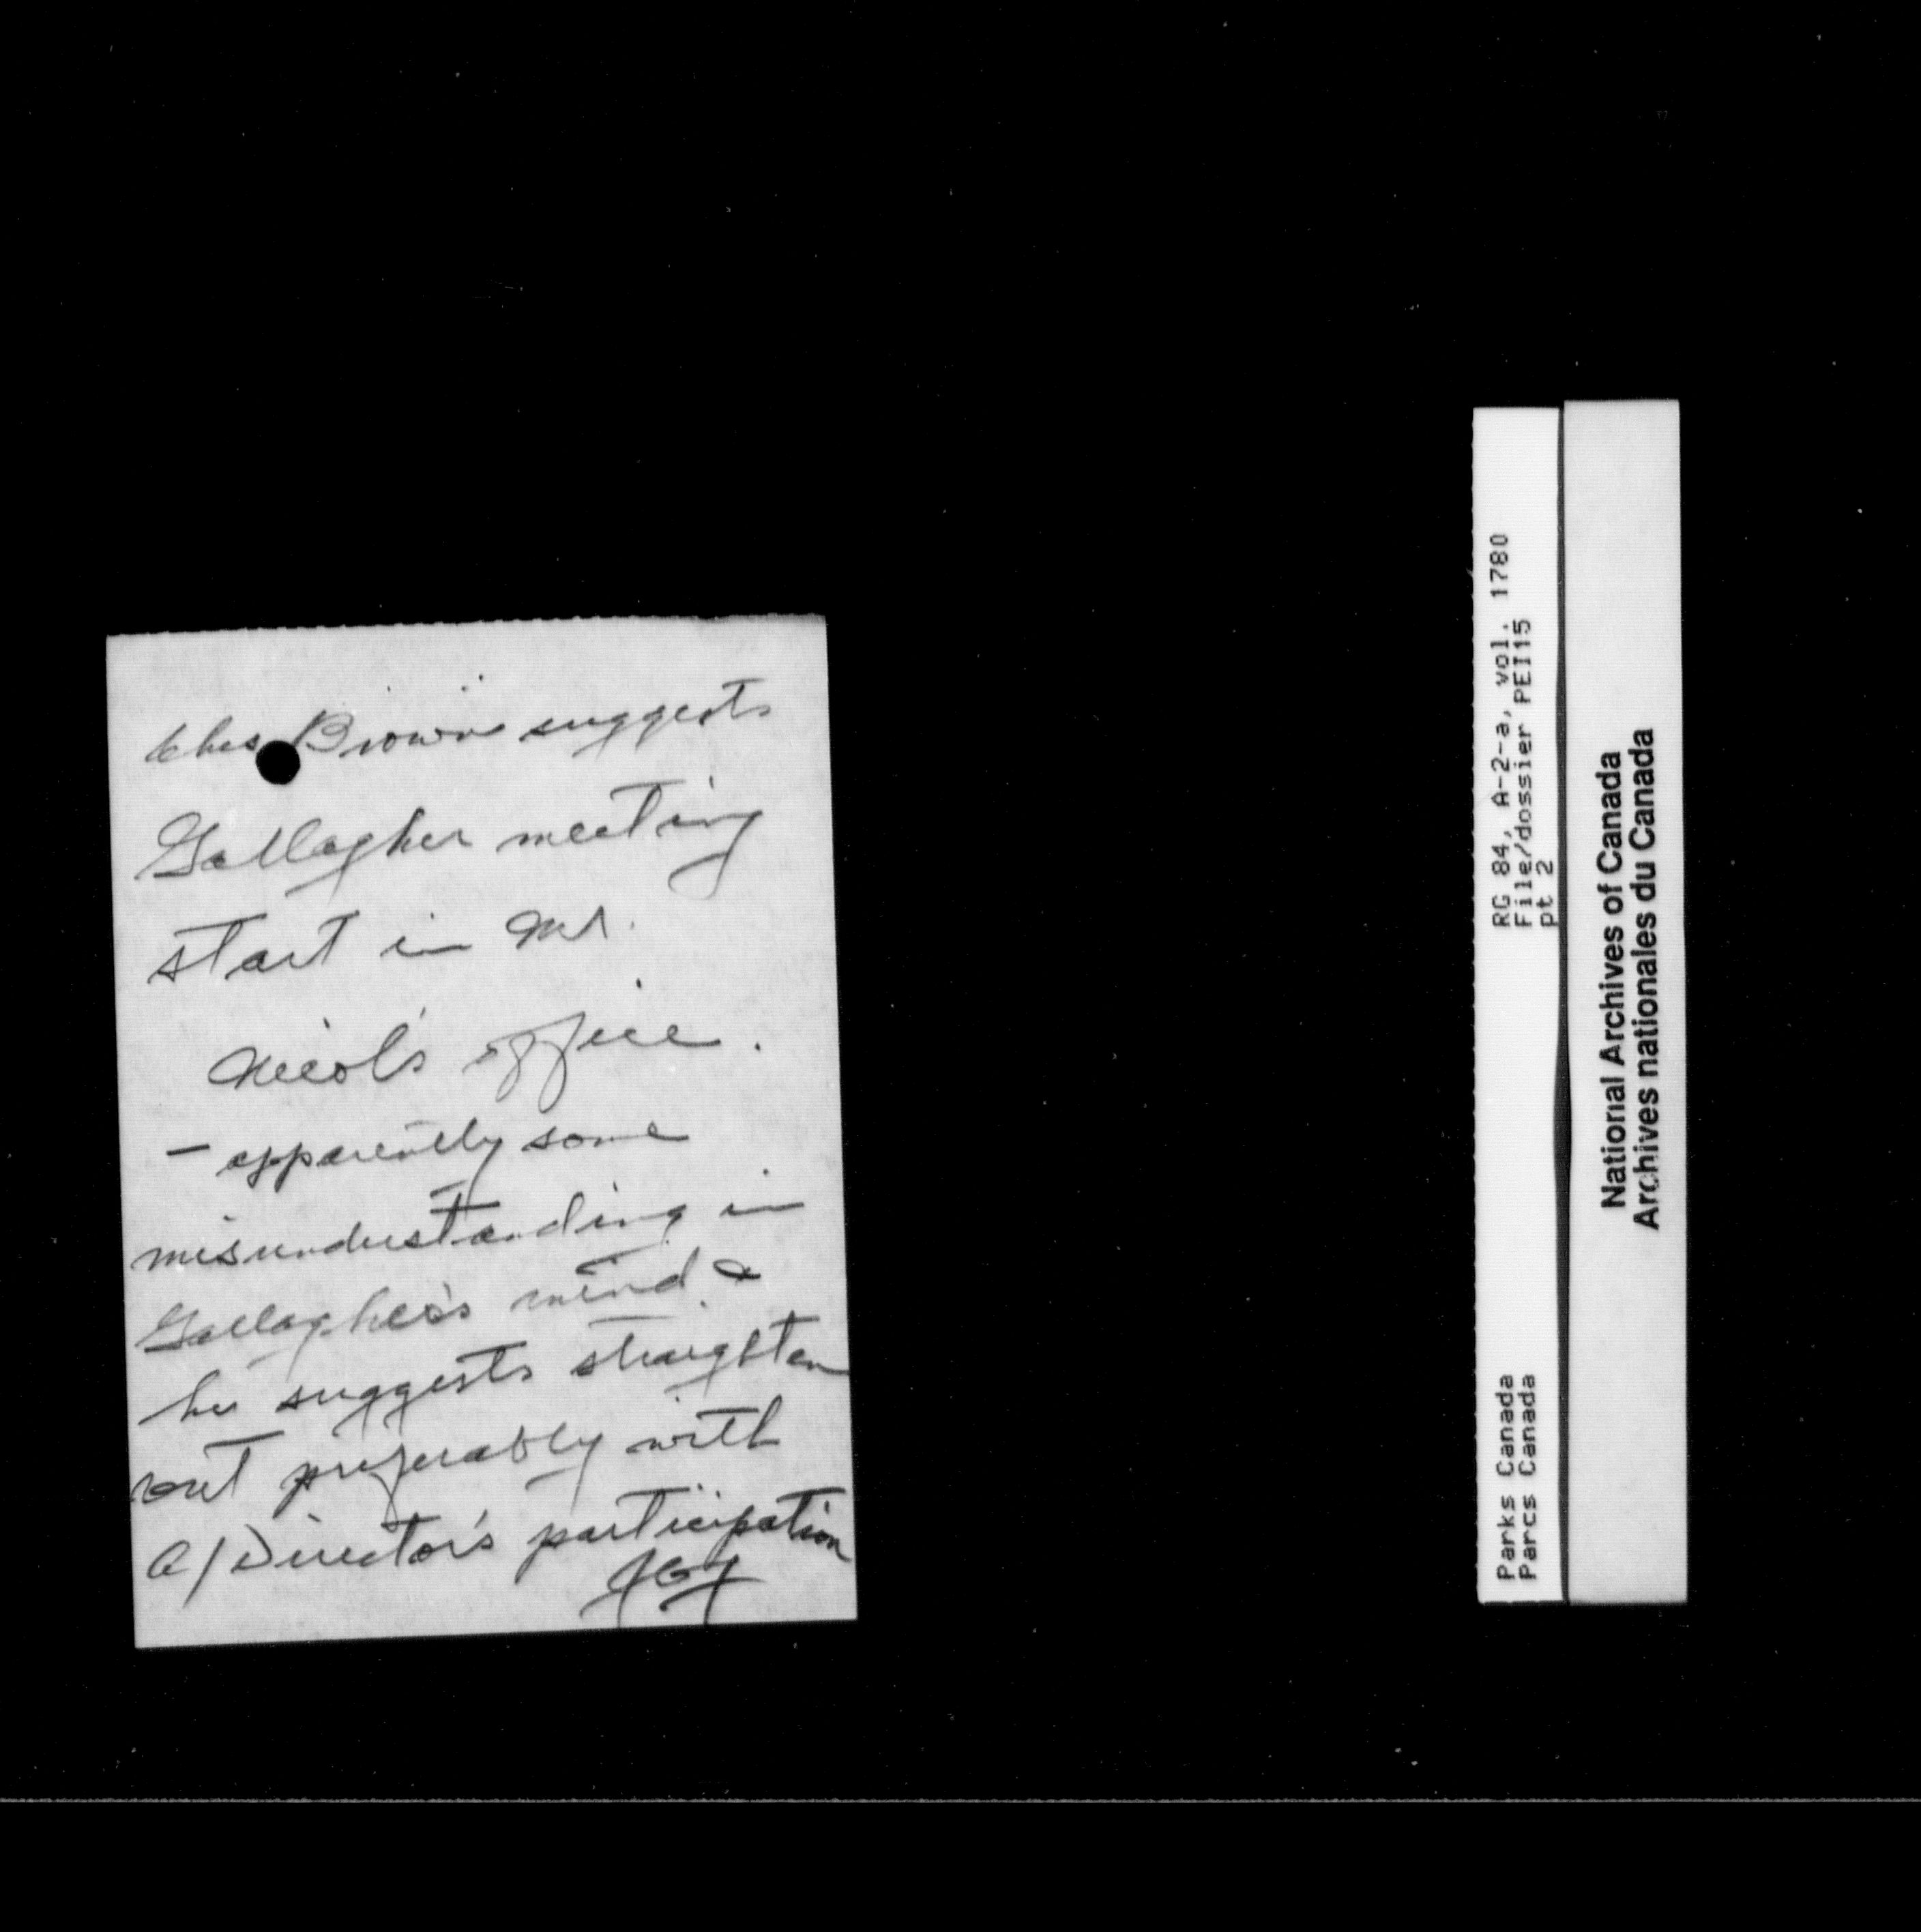 Chas Brown suggests
Gallagher meeting
start in Mr.
Nicol's office.
- apparently some
misunderstanding in
Gallagher's mind &
he suggests straighten
out preferably with
A/Director's participation
RG 84, A-2-a, vol. 1780
File/dossier PEI15
pt 2
Parks Canada
Parcs Canada
National Archives of Canada
Archives nationales du Canada